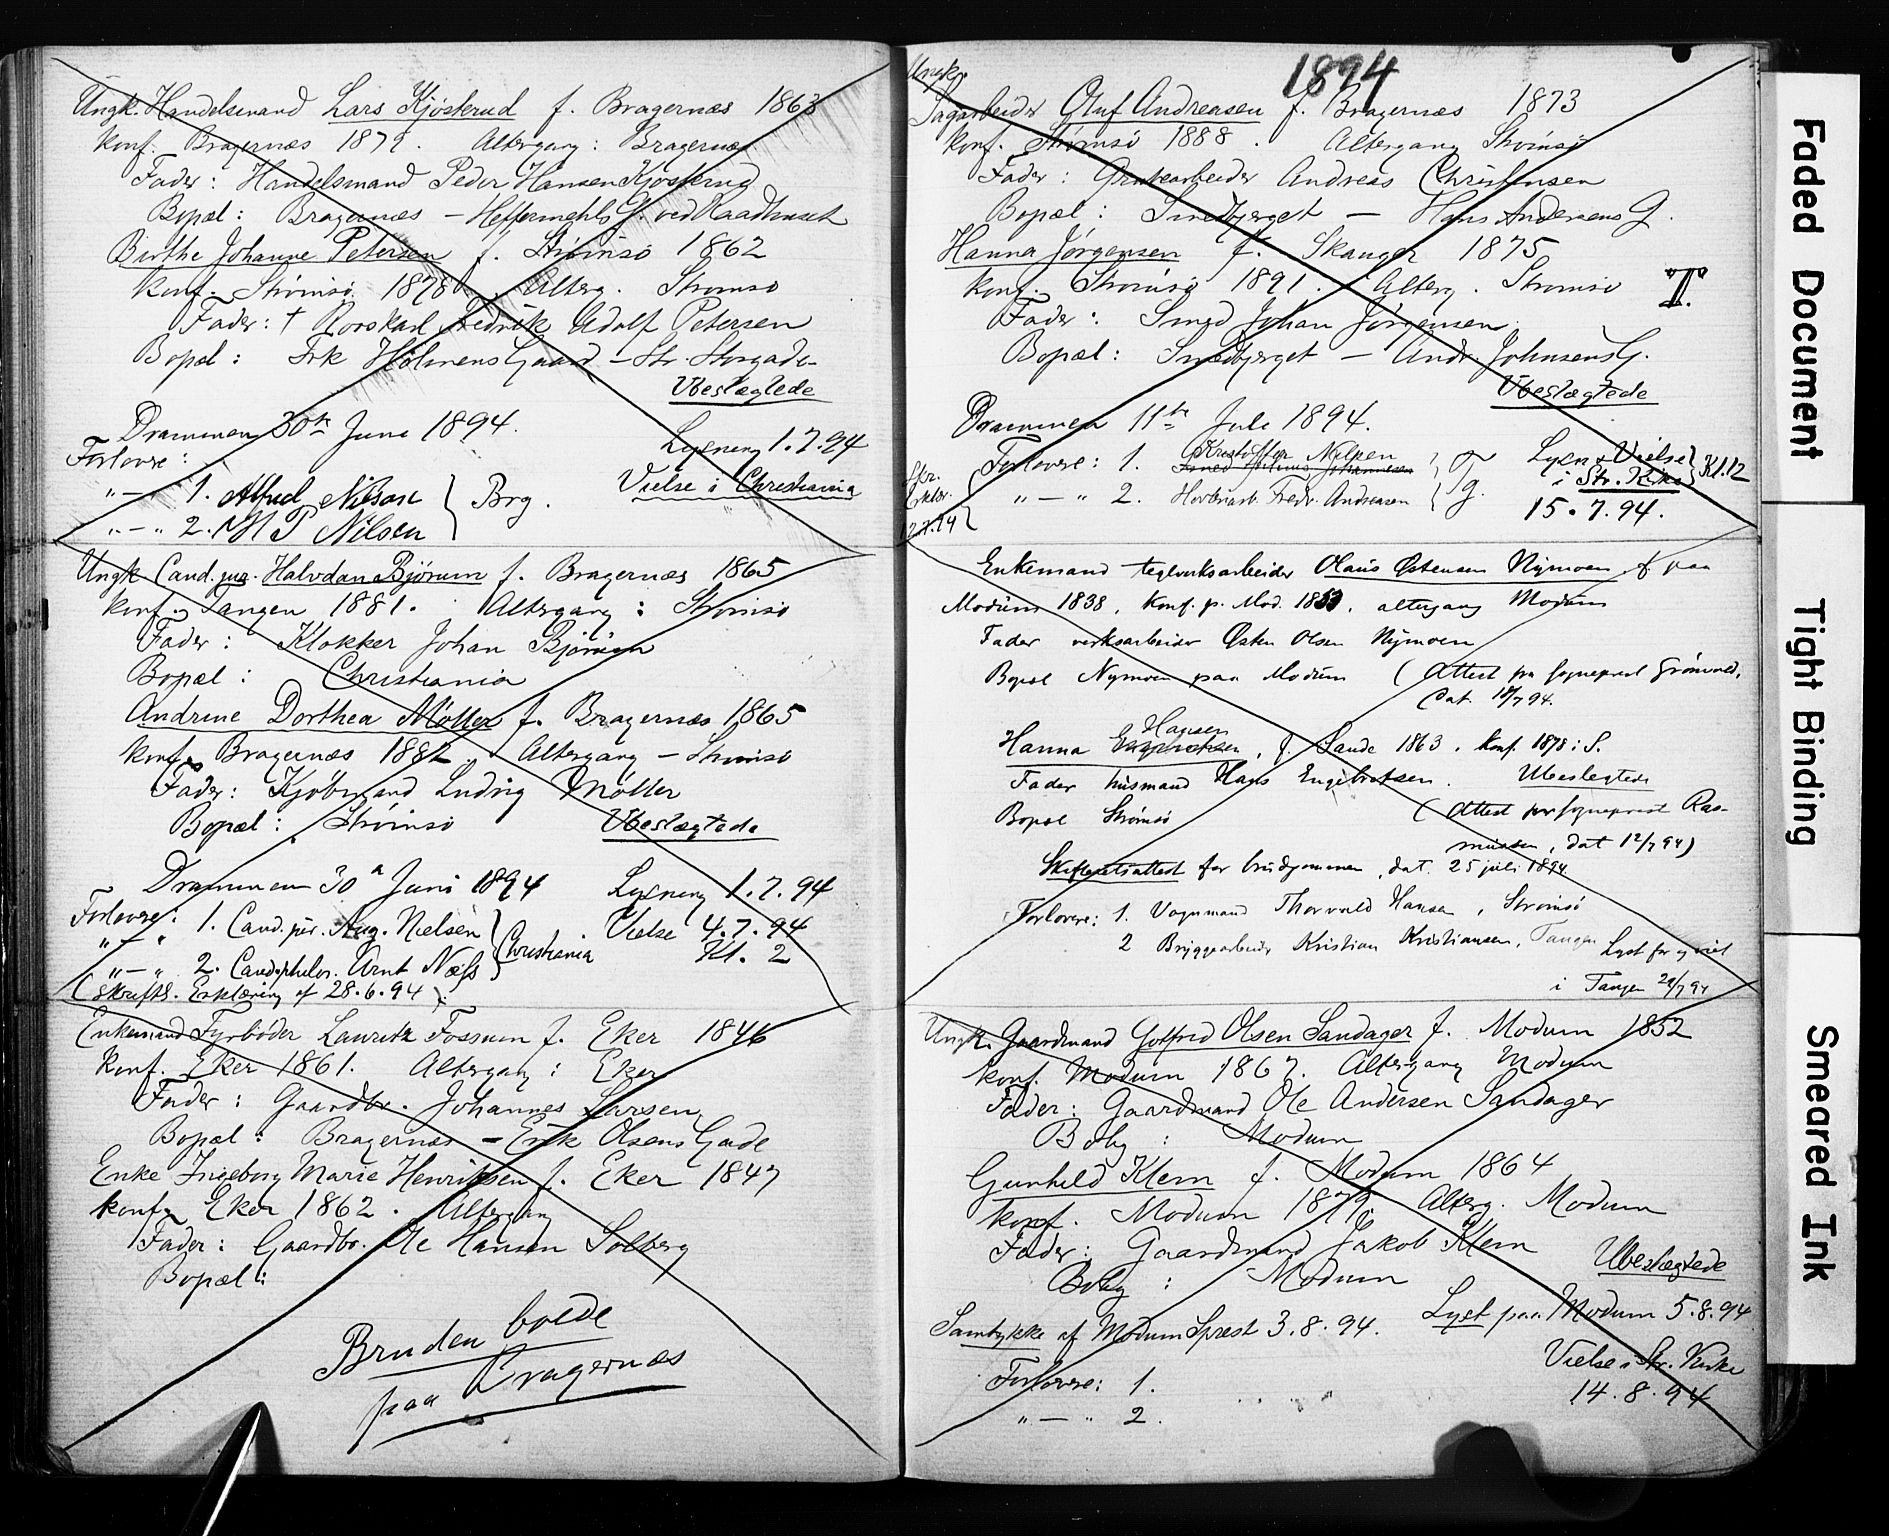 Ungk. Handelsmand Lars Kjøsterud f. Bragernæs 1863
konf. Bragernæs 1879. Altergang: Bragernæs
Fader: Handelsmand Peder Hansen Kjøsterud
Bopæl: Bragernæs — Heffermehls G. ved Raadhuset
Birthe Johanne Petersen f. Strømsø 1862
konf. Strømsø 1878. Alterg. Strømsø
Fader: † Rorskarl Fredrik Adolf Petersen
Bopæl: Frk Holmens Gaard — Str. Storgade
Ubeslægtede
Drammen 30te Juni 1894.
Lysning 1.7.94
Forlovere:
Vielse i Christiania
„ — 1. Alfred Nilsen } Brg.
„ — „ 2. H P Nilsen
Ungk Cand. Halvdan Bjørum f. Bragernæs 1865
konf. Tangen 1881. Altergang: Strømsø
Fader: Klokker Johan Bjørum
Bopæl: Christiania
Andrine Dorthea Møller f. Bragernæs 1865
konf. Bragernæs 1882. Altergang — Strømsø
Fader: Kjøbmand Ludvig Møller
Bopæl: Strømsø Ubeslægtede
Drammen 30 Juni 1894 Lysning 1.7.94
Forlovere: 1. Cand. jur. Aug. Nielsen Vielse 4.7.94
„ — „ 2. Cand. philos. Arnt Næss } Christiania Kl. 2
(Skriftl. Erklæring af 28.6.94)
Enkemand Fyrbøder Lauritz Fossum f. Eker 1846
konf. Eker 1861. Altergang: Eker
Fader: Gaardbr. Johannes Larsen
Bopæl: Bragernæs — Erik Olsens Gade
Enke Ingeborg Marie Henriksen f. Eker 1847
konf. Eker 1862. Altergang
Fader: Gaardbr. Ole Hansen Solberg
Bopæl:
Bruden boede
paa Bragernæs
1894
Ungk.
Sagarbeider Oluf Andreasen f. Bragernæs 1873
konf. Strømsø 1888. Altergang Strømsø
Fader: Andreas Christensen
Bopæl: Smedbjerget — Hans Andersens G.
Hanna Jørgensen f. Skauger 1875
konf. Strømsø 1891. Alterg. Strømsø T.
Fader: Smed Johan Jørgensen
Bopæl: Smedbjerget — Andr. Johnsens G.
Ubeslægtede
Drammen 11te Juli 1894.
Forlovere: 1. Kristoffer Nilsen } Tg. Lysn & Vielse } Kl. 12
i Str. Kirke
„ — „ 2. Fredr. Andreasen
15.7.94.
Enkemand teglverksarbeider Olaus Østensen Nymoen f. paa
Modum 1838, konf. p. Mod. 1853, altergang Modum
Fader verksarbeider Østen Olsen Nymoen
Bopæl Nymoen paa Modum (Attest fra sogneprest Grønvold,
Dat. 18/7 94.
Hansen
Hanna Engebretsen, f. Sande 1863, konf. 1878 i S.
Fader husmand Hans Engebretsen. Ubeslegtede
Bopæl Strømsø (Attest fra sogneprest Ras-
mussen, dat 12/7 94)
Skifteretsattest for brudgommen, dat. 25 juli 1894
Forlovere: 1. Vognmand Thorvald Hansen, Strømsø
2 Bryggearbeider Kristian Kristiansen, Tangen Lyst for og viet
i Tangen 29/7 94
Ungk. Gaardmand Gotfred Olsen Sandager f. Modum 1852
konf. Modum 1867. Altergang Modum
Fader: Gaardmand Ole Andersen Sandager
Boby: Modum
Gunhild Klem f. Modum 1864
konf. Modum 1879. Alterg. Modum
Fader: Gaardmand Jakob Klem
Boby: Modum Ubeslægtede
Samtykke af Modums Prest 3.8.94. Lyst paa Modum 5.8.94
Forlovere: 1. Vielse i Str. Kirke
„ — „ 2. 14.8.94
Faded Document
Tight Binding
Smeared Ink